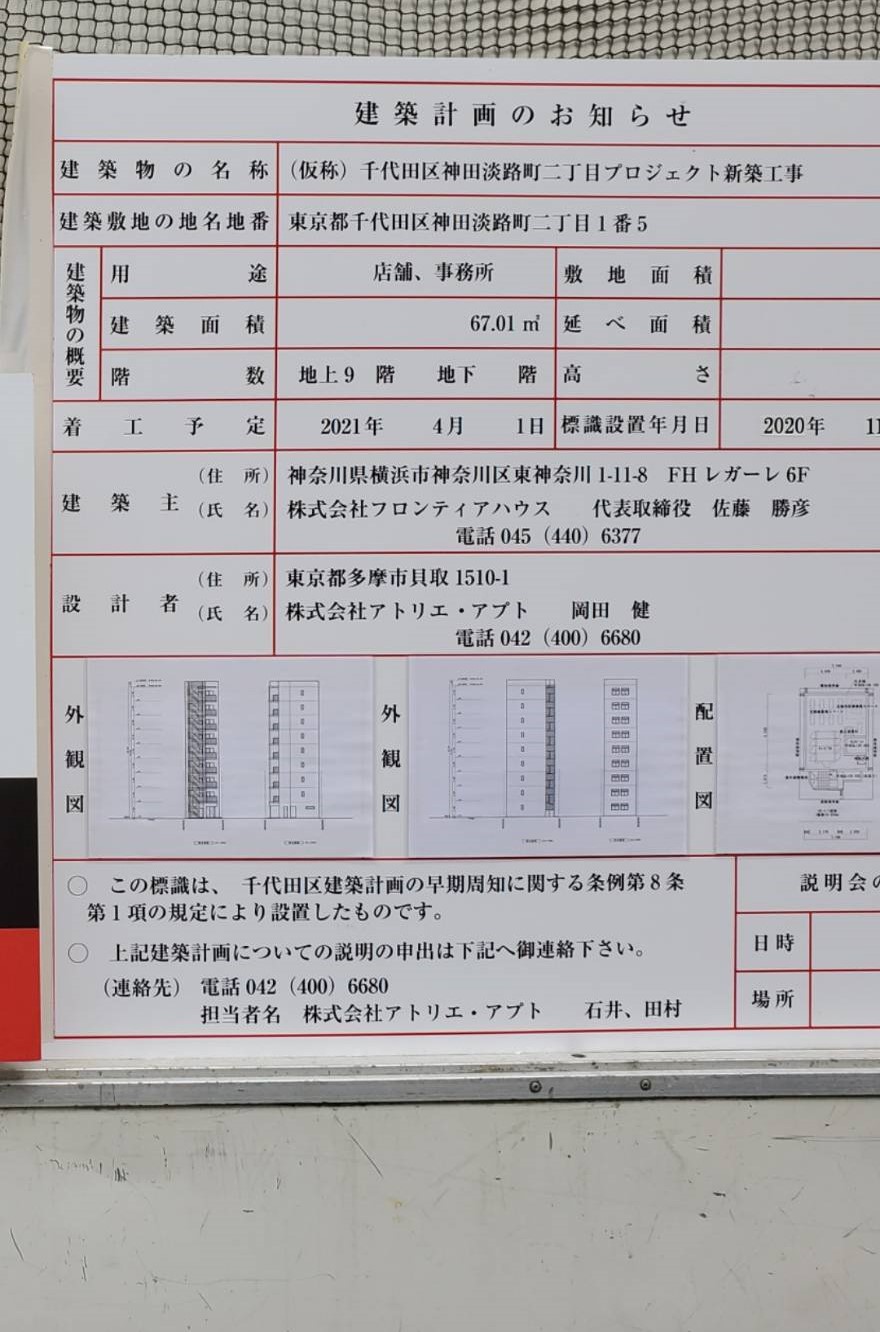 建築計画のお知らせ
建築物の名称 (仮称)千代田区神田淡路町二丁目プロジェクト新築工事
建築敷地の地名地番 東京都千代田区神田淡路町二丁目1番5
建築物の概要
用途 店舗、事務所 敷地面積
建築面積 67.01㎡ 延べ面積
階数 地上9階 地下 階 高さ
着工予定 2021年 4月 1日 標識設置年月日 2020年 11
建築主 (住所) 神奈川県横浜市神奈川区東神奈川1-11-8 FHレガーレ6F
(氏名) 株式会社フロンティアハウス 代表取締役 佐藤 勝彦
電話045(440)6377
設計者 (住所) 東京都多摩市貝取1510-1
(氏名) 株式会社アトリエ・アプト 岡田 健
電話042(400)6680
外観図
外観図
配置図
○ この標識は、千代田区建築計画の早期周知に関する条例第8条
第1項の規定により設置したものです。
○ 上記建築計画についての説明の申出は下記へ御連絡下さい。
(連絡先) 電話042(400)6680
担当者名 株式会社アトリエ・アプト 石井、田村
説明会の
日時
場所